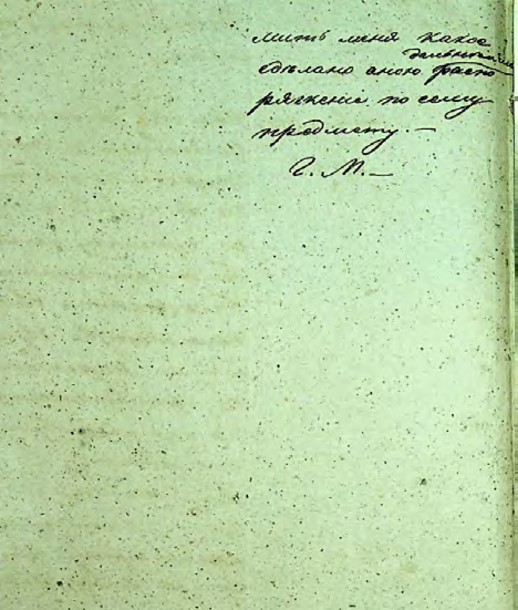 мить меня какое
дальнейшее
сдѣлано оною распо
ряженіе по сему
предмету. —
Г. М. —